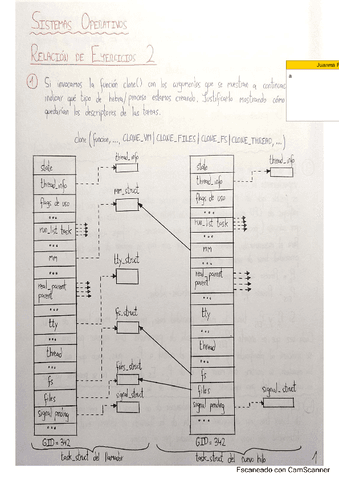 SISTEMAS OPERATIVOS
RELACIÓN DE EJERCICIOS 2
Juanma
a
① Si invocamos la función clone() con los argumentos que se muestran a continuación,
indicar qué tipo de hebra/proceso estamos creando. Justifícarlo mostrando cómo
quedarían los descriptores de las tareas.
clone (funcion, ..., CLONE_VM | CLONE_FILES | CLONE_FS | CLONE_THREAD, ...)
thread_info
state
thread_info
flags de uso
...
run_list task
...
mm
...
real_parent
parent
...
tty
...
thread
...
fs
files
signal pending
...
GID = 342
task_struct del llamador
mm_struct
tty_struct
fs_struct
files_struct
signal_struct
thread_info
state
thread_info
flags de uso
...
run_list task
...
mm
...
real_parent
parent
...
tty
...
thread
...
fs
files
signal pending
...
signal_struct
GID = 342
task_struct del nuevo hilo
1
Escaneado con CamScanner